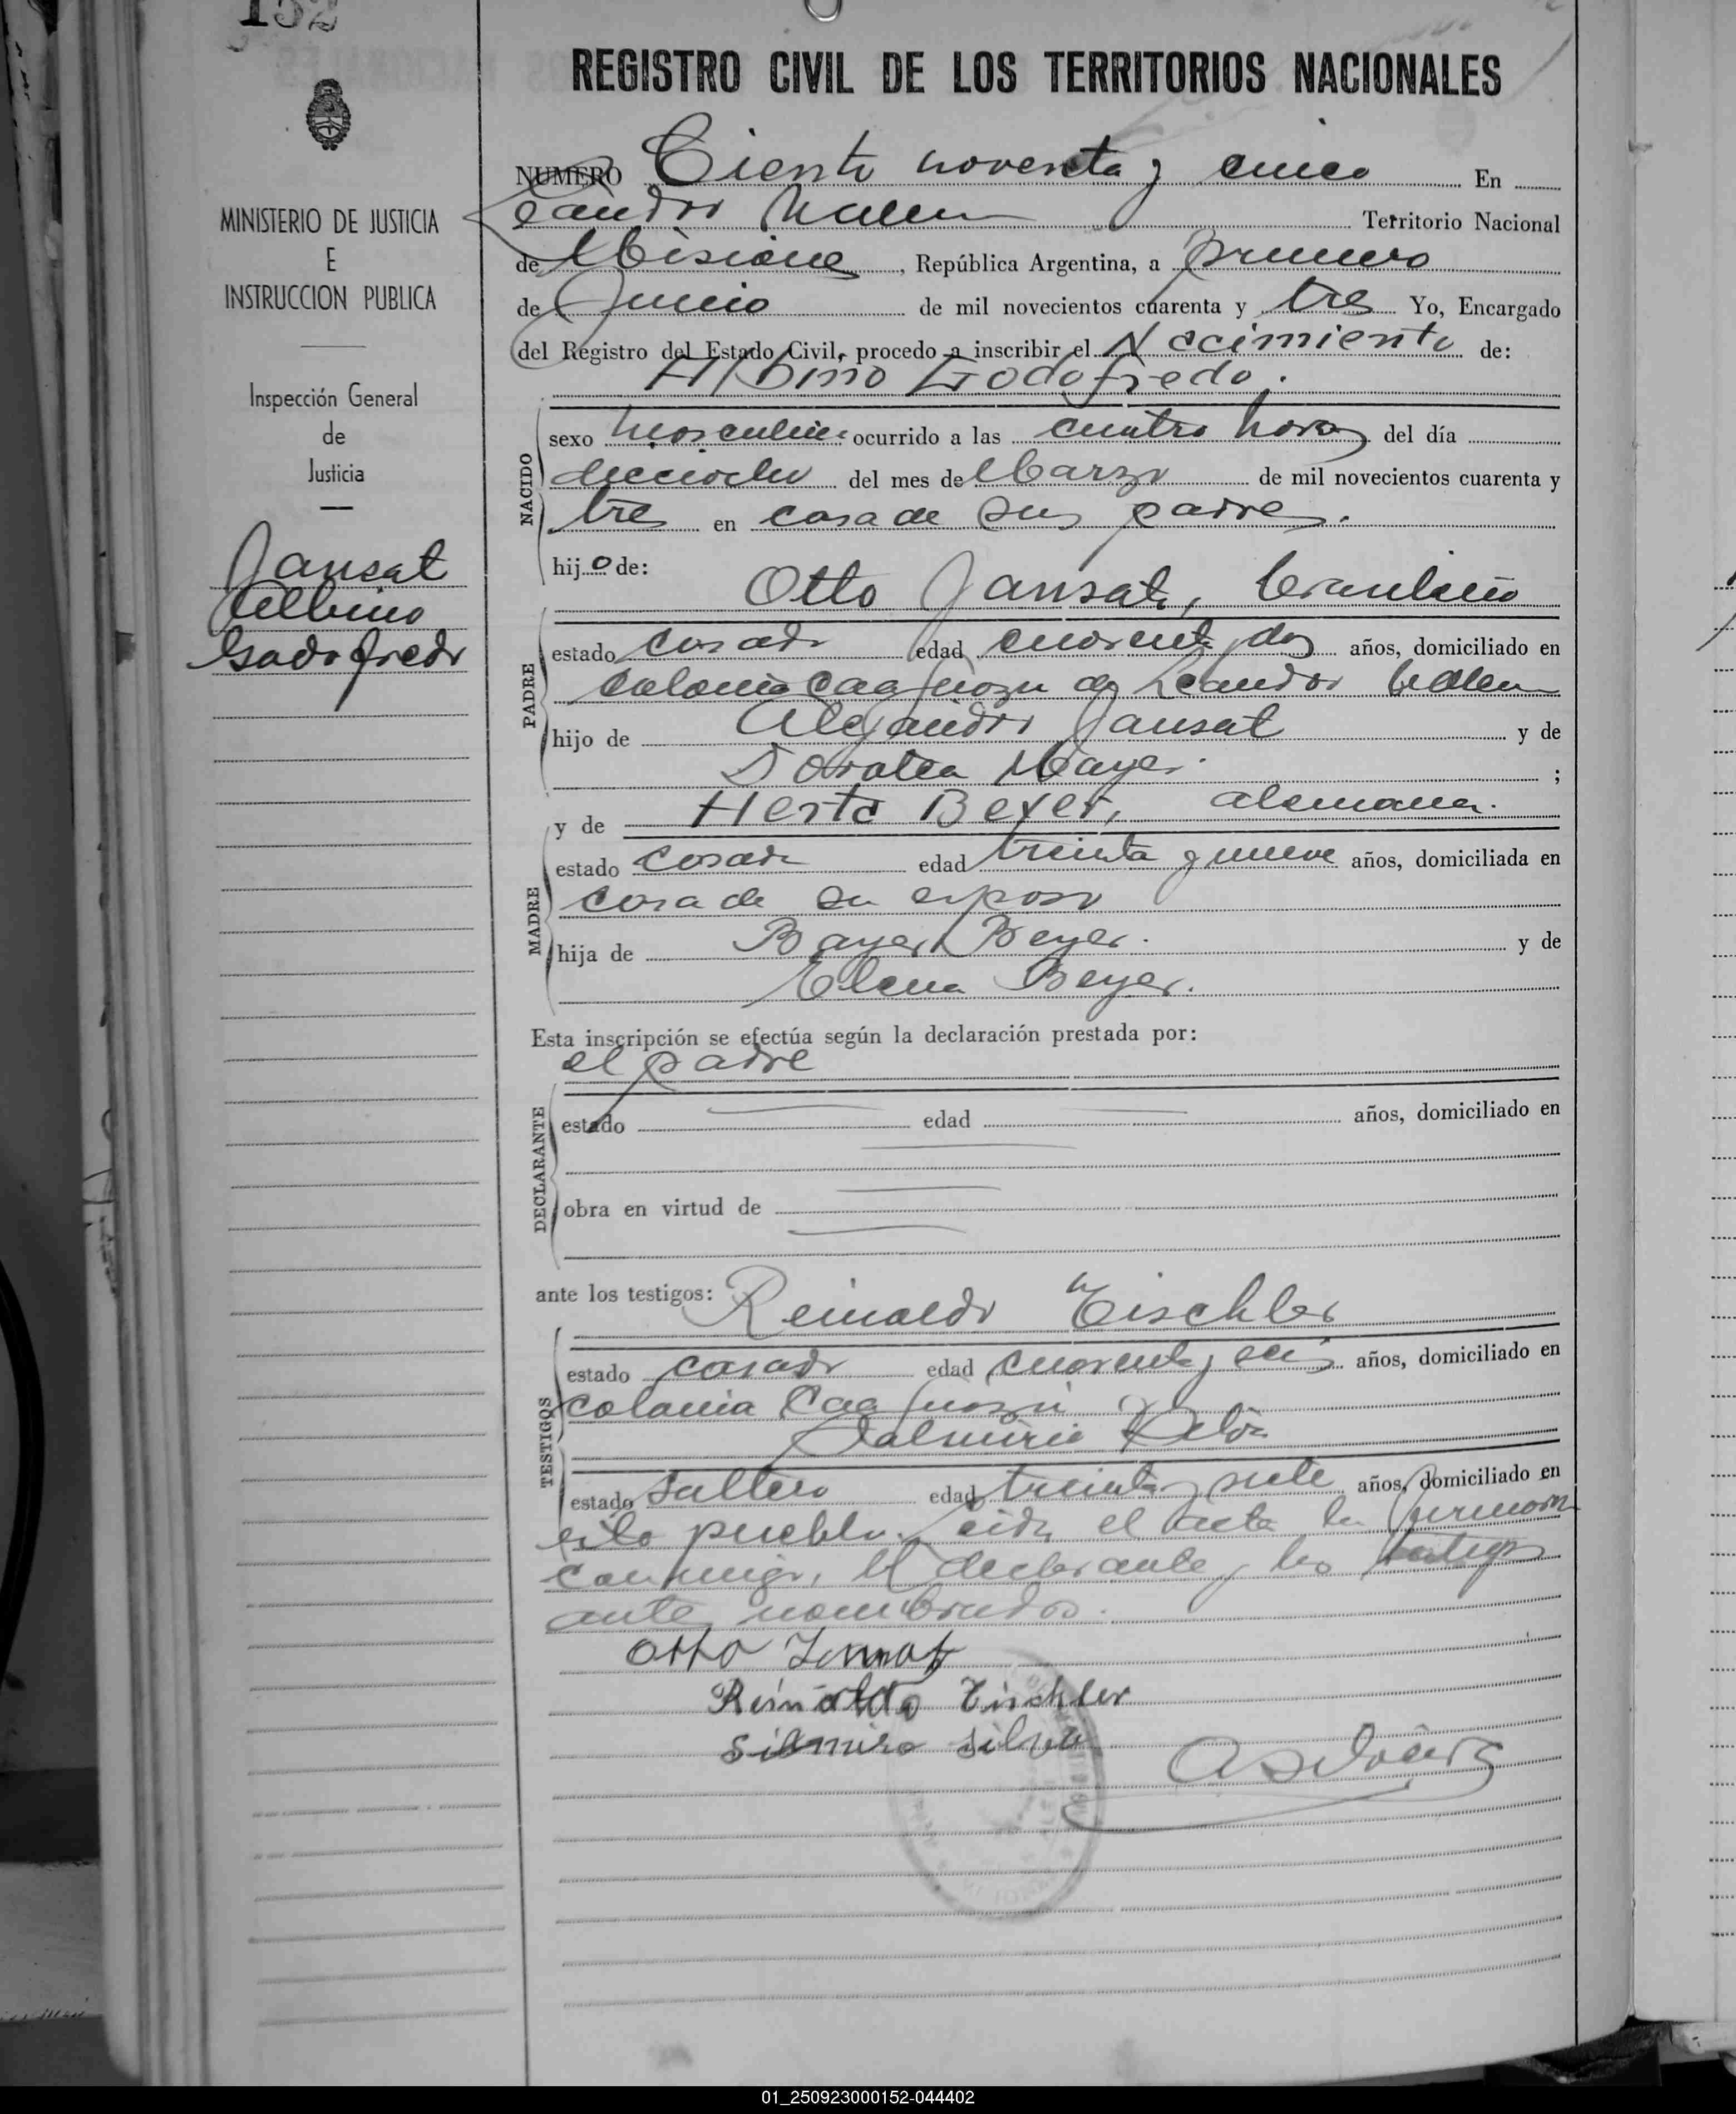 152
MINISTERIO DE JUSTICIA
E
INSTRUCCION PUBLICA
Inspección General
de
Justicia
Jansat
Albino
Godofredo
REGISTRO CIVIL DE LOS TERRITORIOS NACIONALES
NUMERO Ciento noventa y cinco En
Leandro N Alem Territorio Nacional
de Misiones, República Argentina, a primero
de Junio de mil novecientos cuarenta y tres Yo, Encargado
del Registro del Estado Civil, procedo a inscribir el Nacimiento de:
Albino Godofredo.
NACIDO
sexo masculino ocurrido a las cuatro horas del día
dieciocho del mes de Marzo de mil novecientos cuarenta y
tres en casa de sus padres.
hijo de:
Otto Jansat, brasileño
PADRE
estado casado edad cuarenta y dos años, domiciliado en
colonia Caaguazu de Leandro N Alem
hijo de Alejandro Jansat y de
Dorotea Mayer. ;
y de Herta Beyer, alemana.
MADRE
estado casada edad treinta y nueve años, domiciliada en
casa de su esposo
hija de Bayer Beyer. y de
Elena Beyer.
Esta inscripción se efectúa según la declaración prestada por:
el padre
DECLARANTE
estado edad años, domiciliado en
obra en virtud de
ante los testigos: Reinaldo Tischler
TESTIGOS
estado casado edad cuarenta y seis años, domiciliado en
colonia Caaguazu y
Silva
estado soltero edad treinta y siete años, domiciliado en
este pueblo. Leida el acta la firmaron
conmigo, el declarante y los testigos
antes nombrados.
Otto Jansat
Reinaldo Tischler
Silmiro Silva
01_250923000152-044402